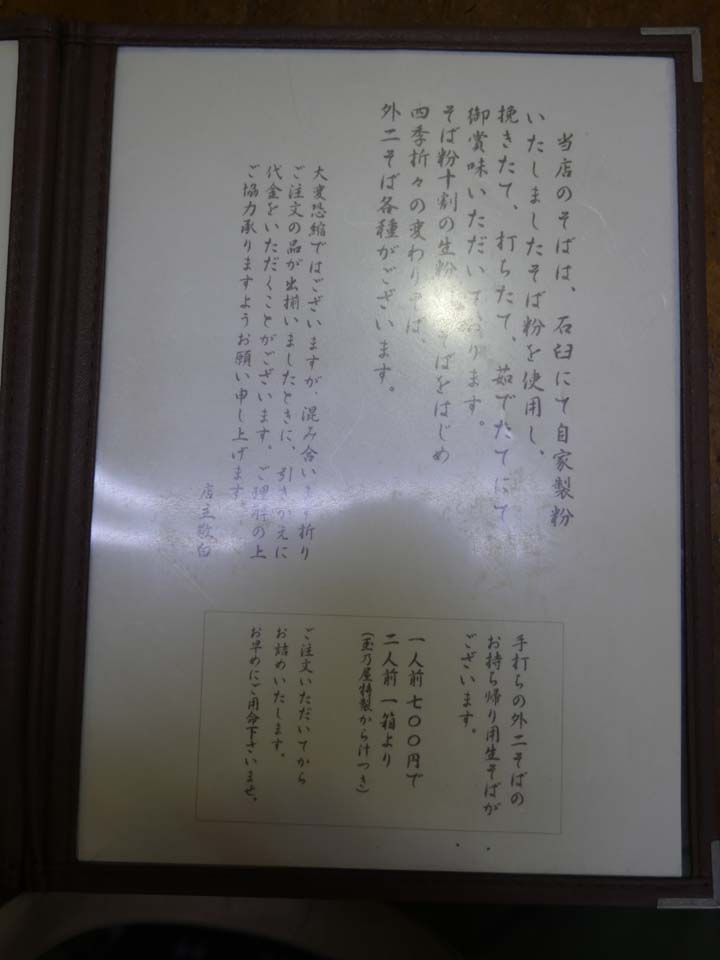 当店のそばは、石臼にて自家製粉
いたしましたそば粉を使用し、
挽きたて、打ちたて、茹でたてにて
御賞味いただいております。
そば粉十割の生粉 そばをはじめ
四季折々の変わりそば、
外二そば各種がございます。
大変恐縮ではございますが、混み合います折り
ご注文の品が出揃いましたときに、引きかえに
代金をいただくことがございます。ご理解の上
ご協力承りますようお願い申し上げます。
店主敬白
手打ちの外二そばの
お持ち帰り用生そばが
ございます。
一人前 七〇〇円で
二人前 一箱より
(玉乃屋特製からけつき)
ご注文いただいてから
お詰めいたします。
お早めにご用命下さいませ。